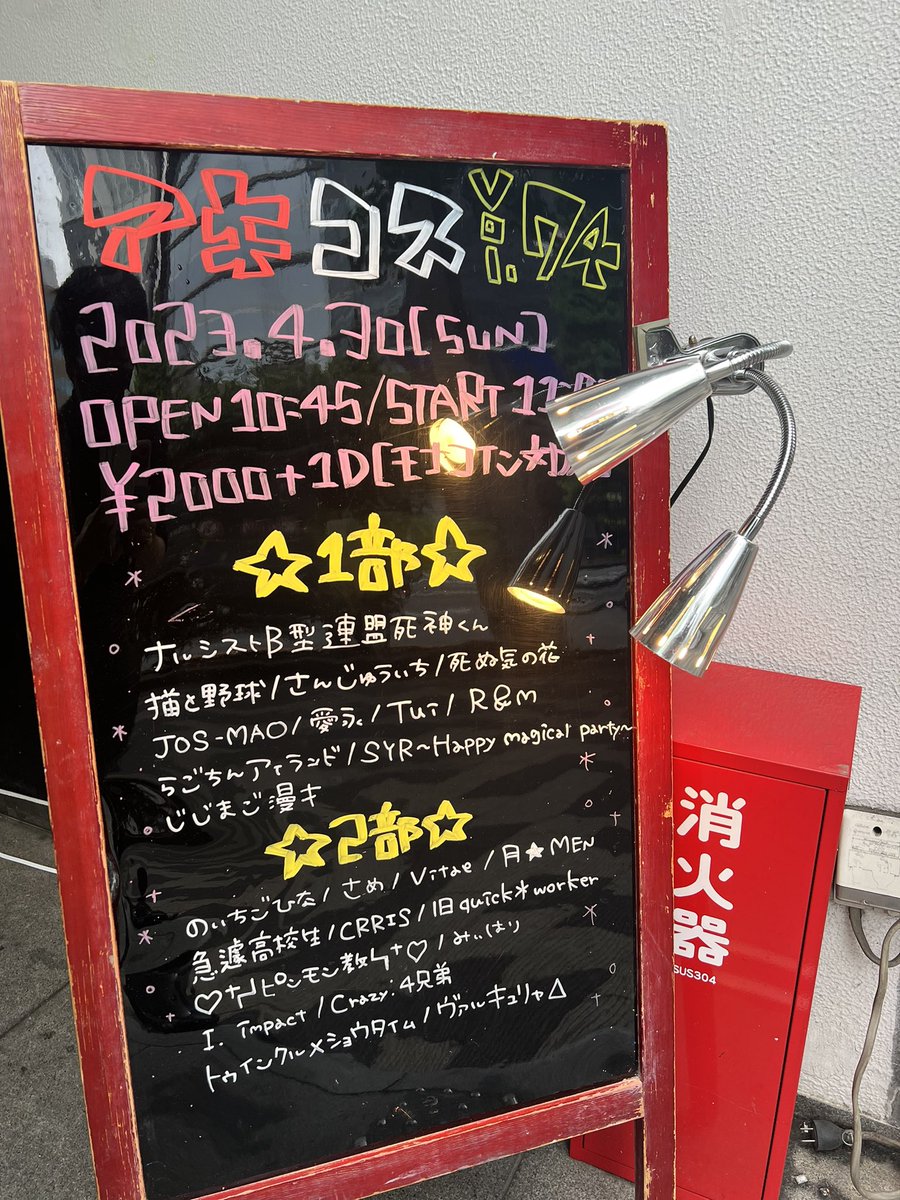 アキコスxi.74
2023.4.30[SUN]
OPEN 10:45/START 11:
¥2000+1D[モナコイン☆
☆1部☆
ナルシストB型連盟死神くん
猫と野球/さんじゅういち/死ぬ気の花
JOS-MAO/愛永/TUT/R&M
らごちんアイランド/SYR~Happy magical party~
じじまご漫キ
☆2部☆
のいちごひな/さめ/Vitae/月★MEN
急遽高校生/CRRIS/旧quick*worker
ピンモン教 /みぃはり
I. Impact/Crazy:4兄弟
トゥインクル×ショウタイム/ヴァルキュリャ△
消火器
SUS304